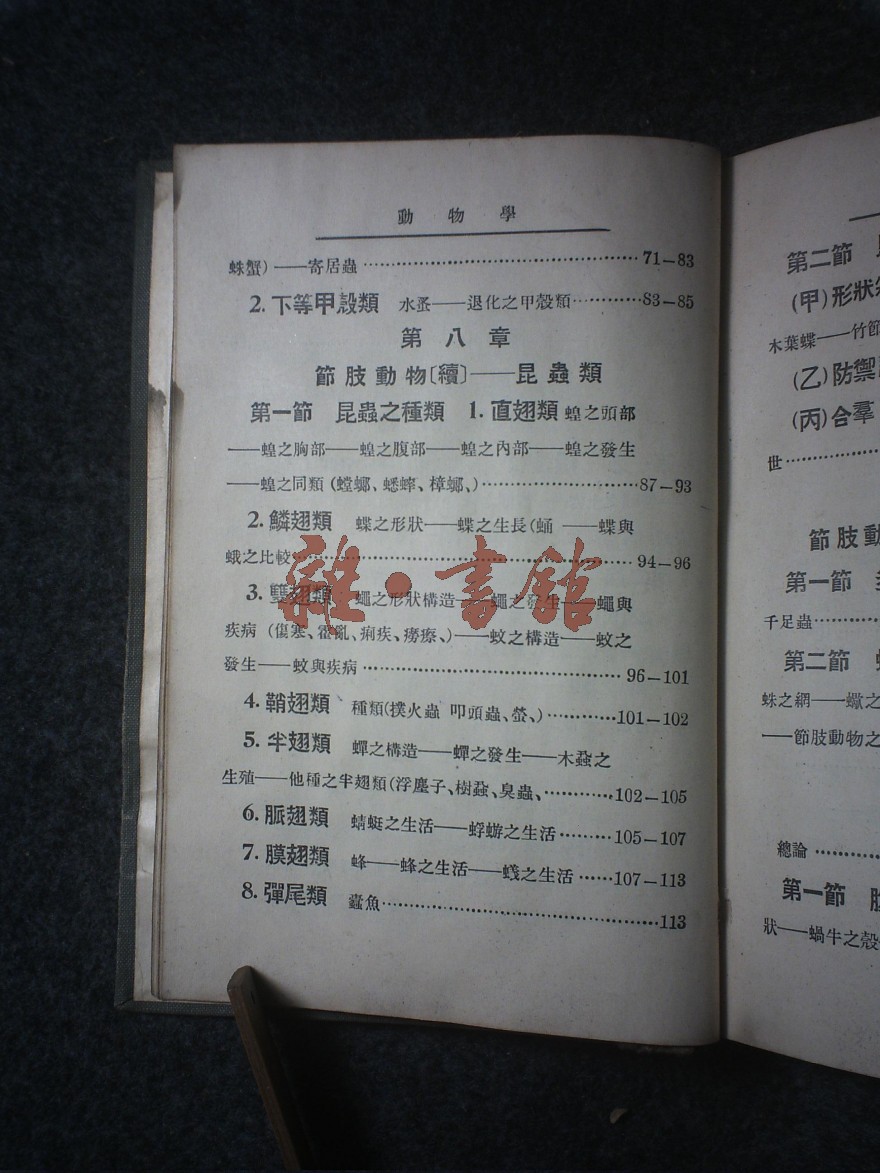 動物學
蛛蟹)——寄居蟲………………………………………71—83
2. 下等甲殼類 水蚤——退化之甲殼類…………83—85
第八章
節肢動物〔續〕——昆蟲類
第一節 昆蟲之種類 1. 直翅類 蝗之頭部
——蝗之胸部——蝗之腹部——蝗之內部——蝗之發生
——蝗之同類(螳螂、蟋蟀、樟螂、)……………………87—93
2. 鱗翅類 蝶之形狀——蝶之生長(蛹 ——蝶與
蛾之比較………………………………………94—96
3. 雙翅類 蠅之形狀構造——蠅之發生——蠅與
疾病(傷寒、霍亂、痢疾、癆瘵、)——蚊之構造——蚊之
發生——蚊與疾病……………………………………96—101
4. 鞘翅類 種類(撲火蟲 叩頭蟲、螢、)…………101—102
5. 半翅類 蟬之構造——蟬之發生——木蝨之
生殖——他種之半翅類(浮塵子、樹蝨、臭蟲、…………102—105
6. 脈翅類 蜻蜓之生活——蜉蝣之生活………105—107
7. 膜翅類 蜂——蜂之生活——螘之生活……107—113
8. 彈尾類 蠹魚………………………………………113
雜·書館
第二節
(甲)形狀
木葉蝶——竹節
(乙)防禦
(丙)合羣
世………………
節肢動
第一節
千足蟲…………
第二節
蛛之網——蠍之
——節肢動物之
總論…………
第一節
狀——蝸牛之殼